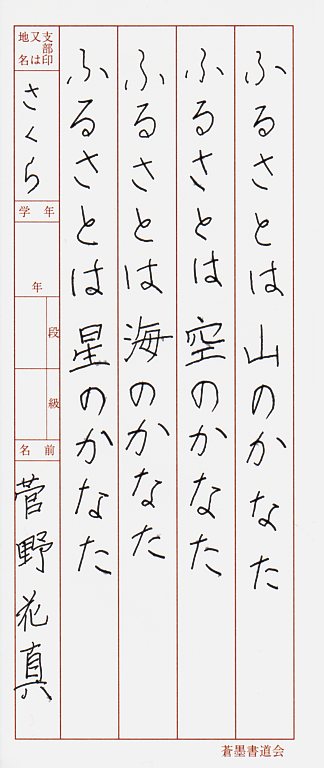 ふるさとは山のかなた
ふるさとは空のかなた
ふるさとは海のかなた
ふるさとは星のかなた
支部印
又は
地名
さくら
学年
年
段
級
名前
菅野花真
蒼墨書道会